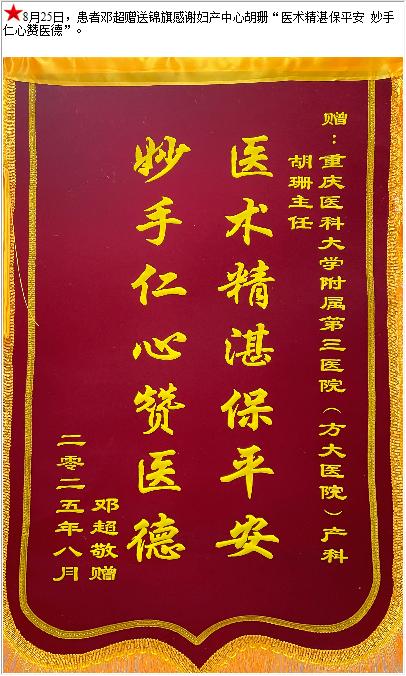 8月25日，患者邓超赠送锦旗感谢妇产中心胡珊“医术精湛保平安 妙手
仁心赞医德”。
赠：重庆医科大学附属第三医院（方大医院）产科
胡珊主任
医术精湛保平安
妙手仁心赞医德
邓超敬赠
二零二五年八月